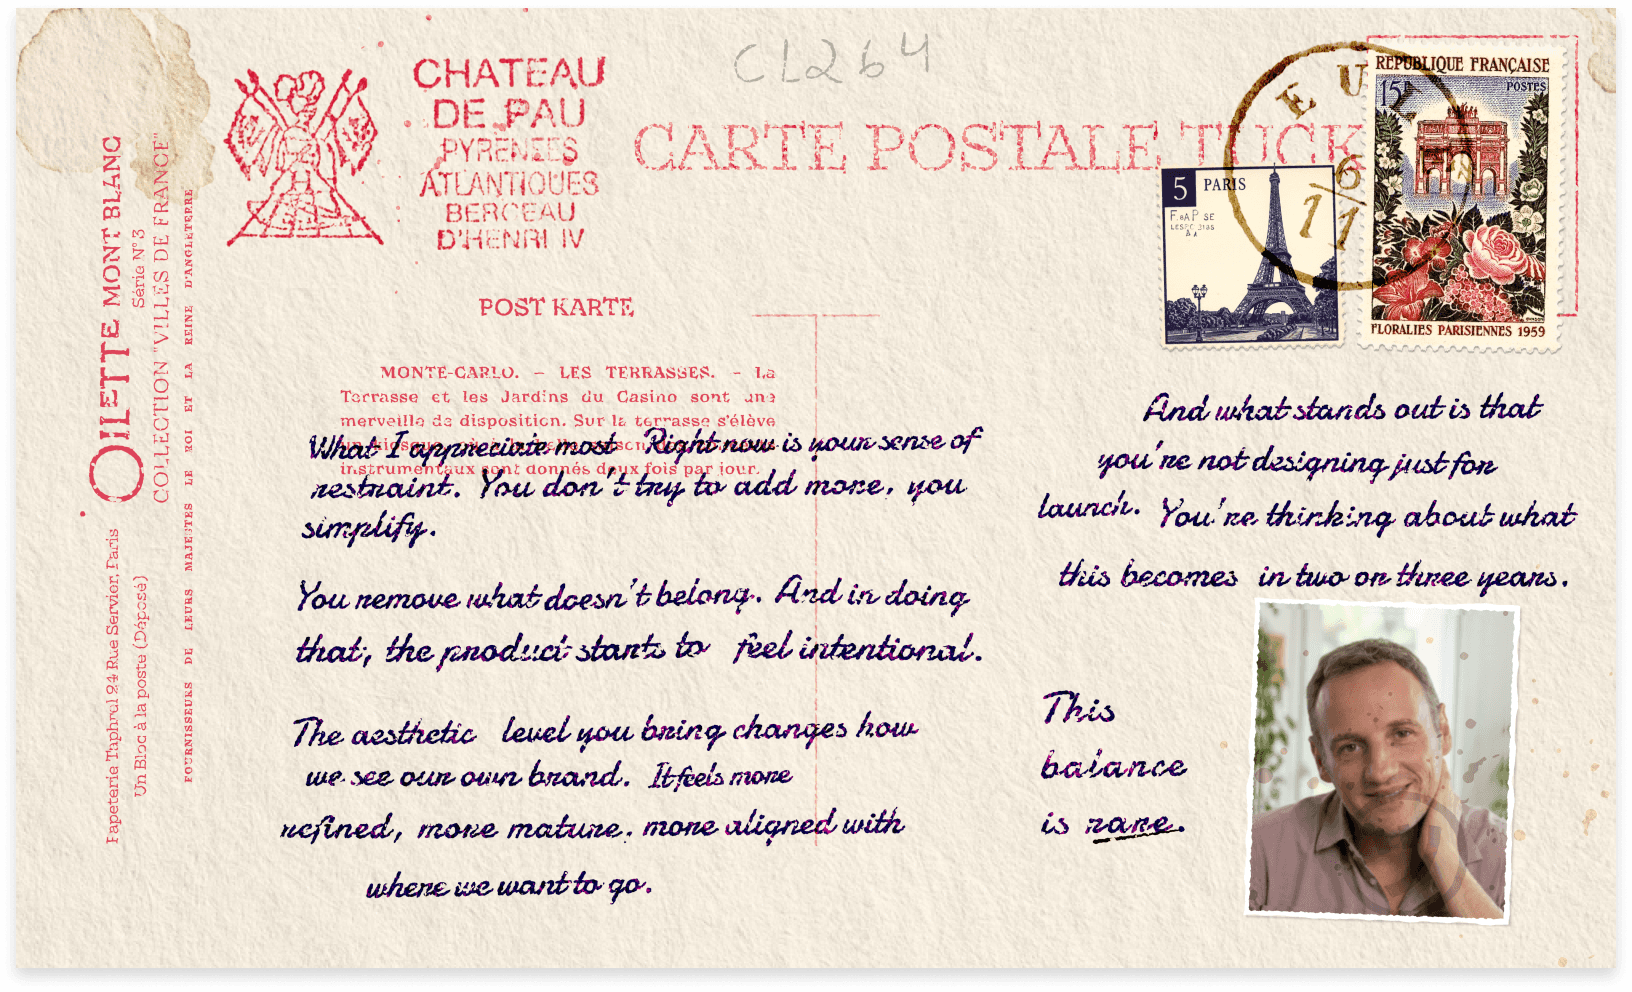 CL264
CHATEAU
DE PAU
PYRENEES
ATLANTIQUES
BERCEAU
D'HENRI IV
CARTE POSTALE TUCK
POST KARTE
5 PARIS
REPUBLIQUE FRANÇAISE
15F POSTES
FLORALIES PARISIENNES 1959
6/11
OILETTE MONT BLANC
Série N° 3
COLLECTION "VILLES DE FRANCE"
FOURNISSEURS DE LEURS MAJESTES LE ROI ET LA REINE D'ANGLETERRE
Papeterie Taphrol 24 Rue Servior, Paris
Un Bloc à la poste (Déposé)
MONTE-CARLO. – LES TERRASSES. – La
Terrasse et les Jardins du Casino sont une
merveille de disposition. Sur la terrasse s'élève
instrumentaux sont donnés deux fois par jour.
What I appreciate most Right now is your sense of
restraint. You don't try to add more, you
simplify.
You remove what doesn't belong. And in doing
that, the product starts to feel intentional.
The aesthetic level you bring changes how
we see our own brand. It feels more
refined, more mature, more aligned with
where we want to go.
And what stands out is that
you're not designing just for
launch. You're thinking about what
this becomes in two or three years.
This
balance
is rare.